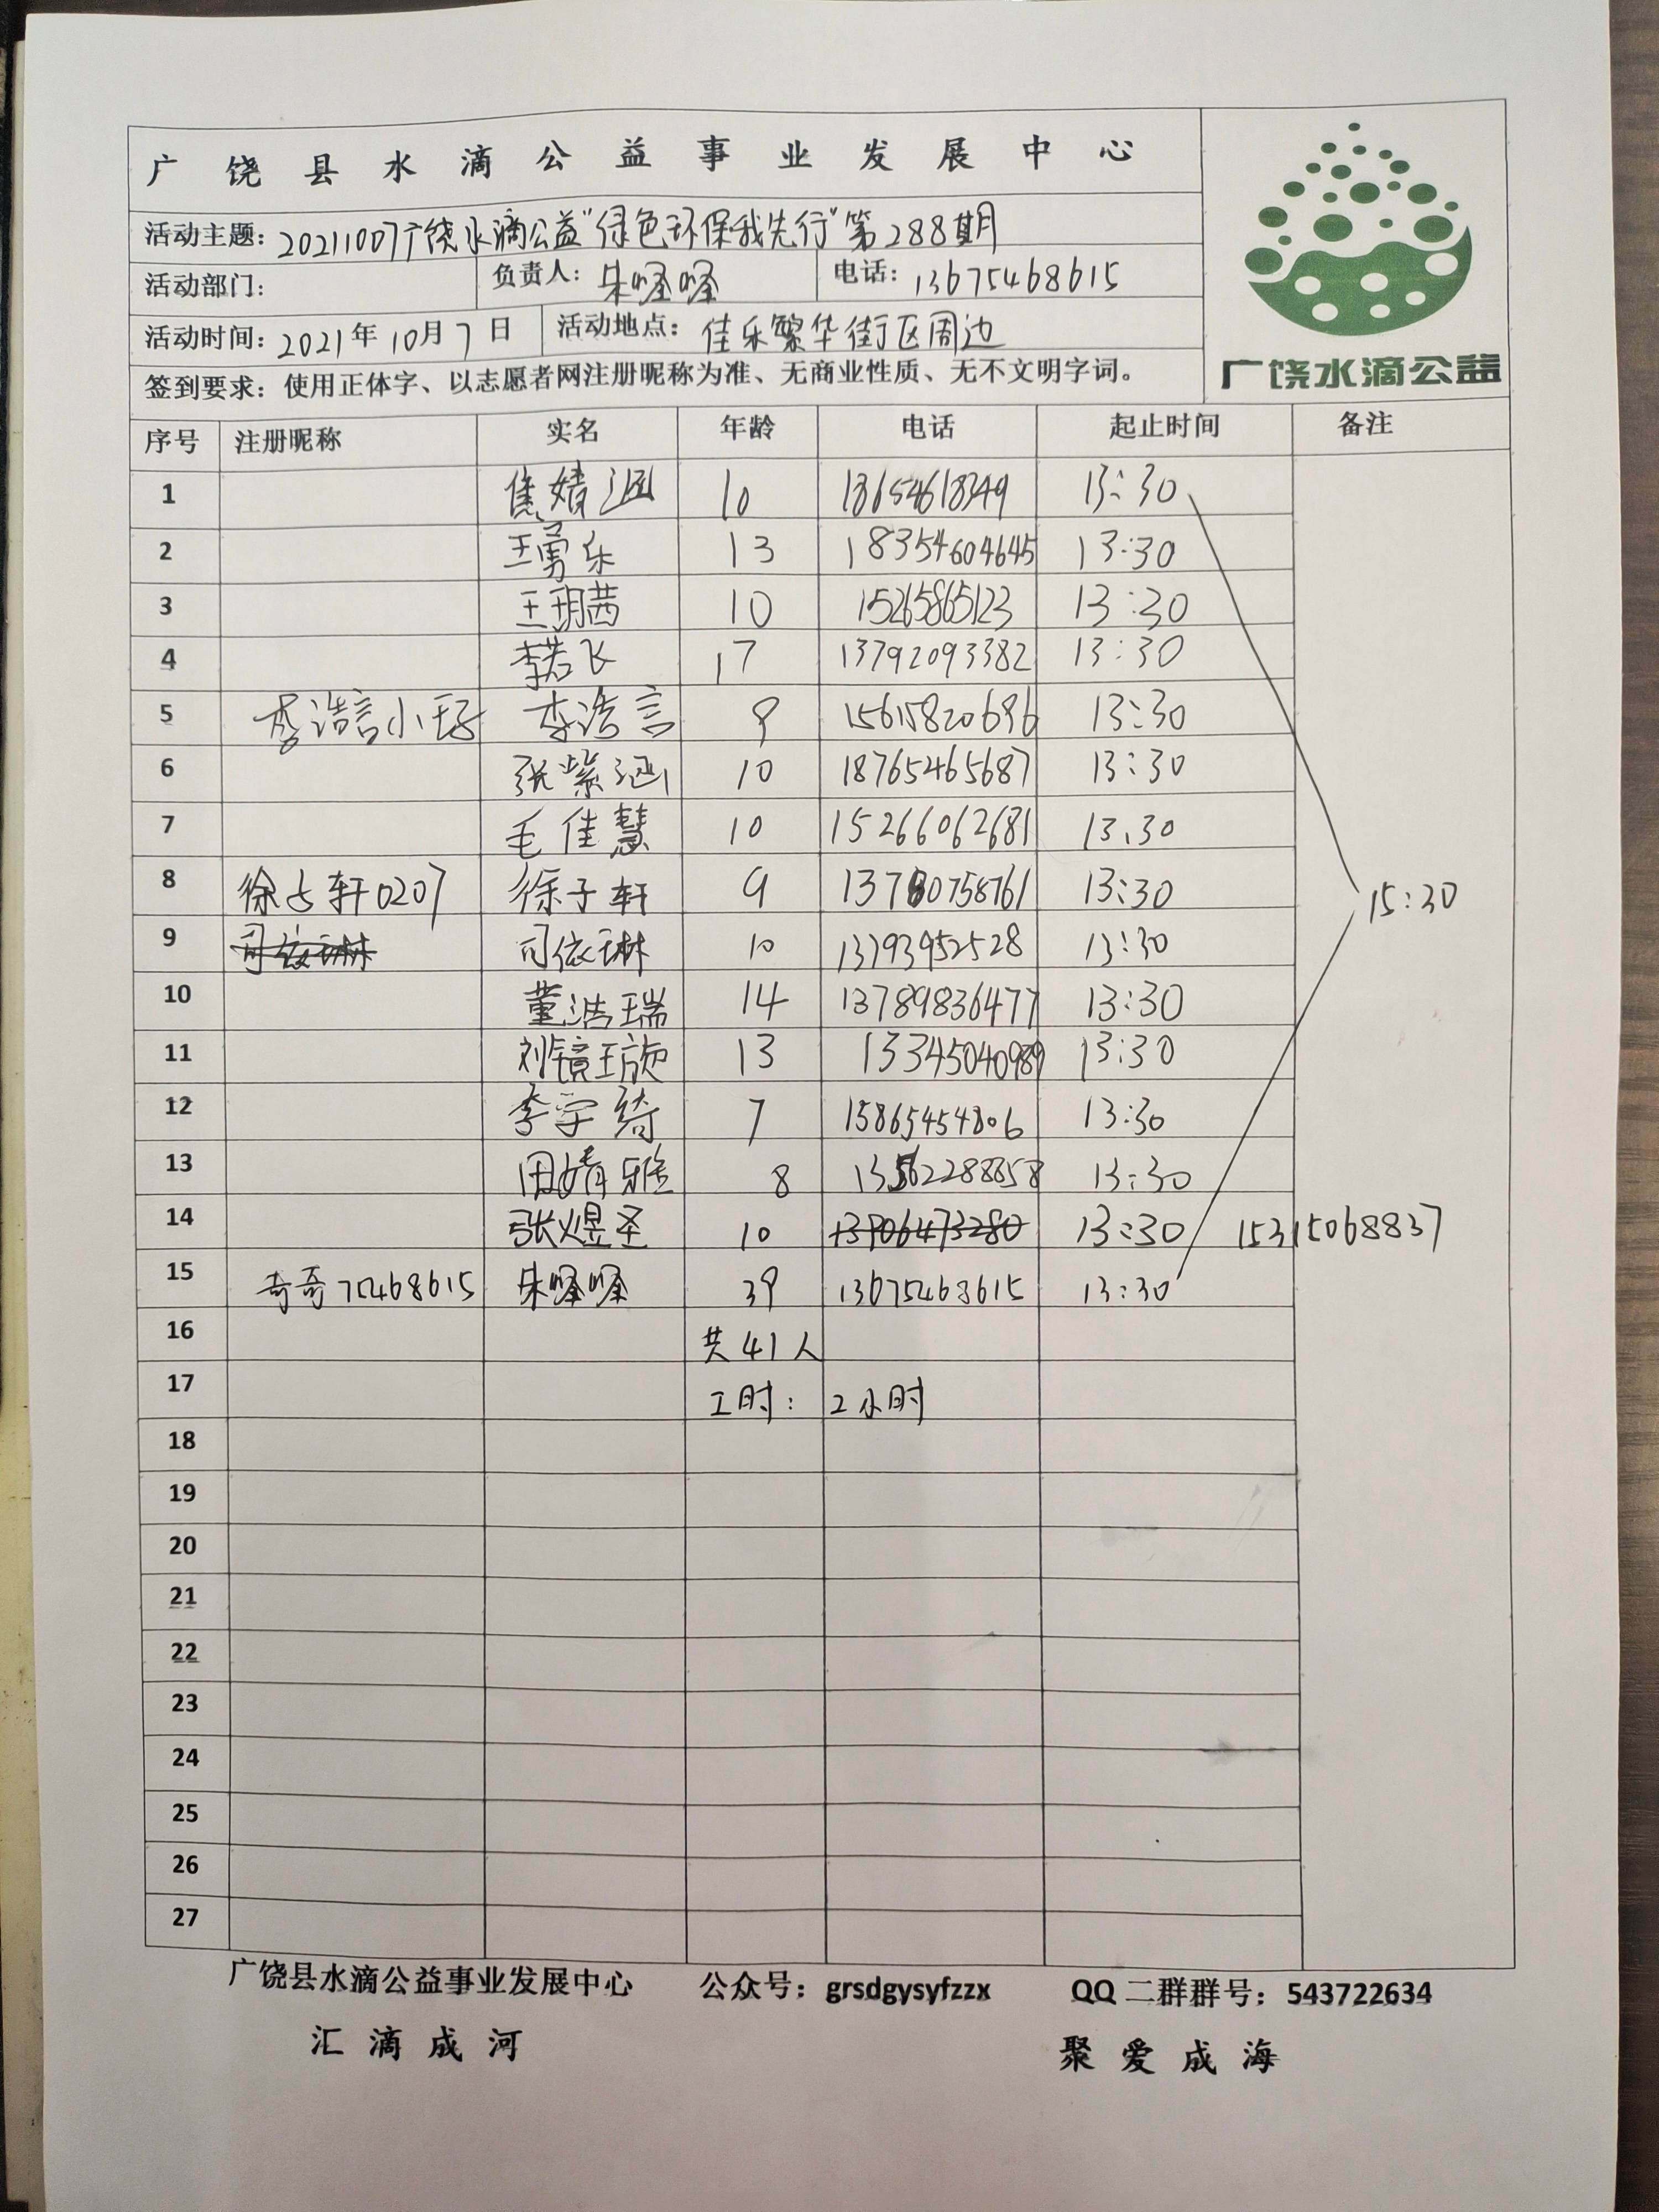 广饶县水滴公益事业发展中心
活动主题：20211007广饶水滴公益"绿色环保我先行"第288期
活动部门： 负责人：朱峰峰 电话：13675468615
活动时间：2021年10月7日 活动地点：佳乐繁华街区周边
签到要求：使用正体字、以志愿者网注册昵称为准、无商业性质、无不文明字词。
广饶水滴公益
序号 注册昵称 实名 年龄 电话 起止时间 备注
1 焦婧涵 10 18654618349 13:30
2 王勇乐 13 18354604645 13:30
3 王玥茜 10 15265865123 13:30
4 李若飞 17 13792093382 13:30
5 李浩言小 李浩言 9 15615820696 13:30
6 张紫涵 10 18765465687 13:30
7 毛佳慧 10 15266062681 13:30
8 徐子轩0207 徐子轩 9 13780758761 13:30
15:30
9 司依琳 司依琳 10 13793952528 13:30
10 董浩瑞 14 13789836477 13:30
11 刘镜璇 13 13345040989 13:30
12 李宇绮 7 15865454806 13:30
13 田婧雅 8 13562288858 13:30
14 张煜圣 10 13906473280 13:30 15315068837
15 奇奇75468615 朱峰峰 39 13675468615 13:30
16 共41人
17 工时：2小时
18
19
20
21
22
23
24
25
26
27
广饶县水滴公益事业发展中心 公众号：grsdgysyfzzx QQ二群群号：543722634
汇滴成河 聚爱成海